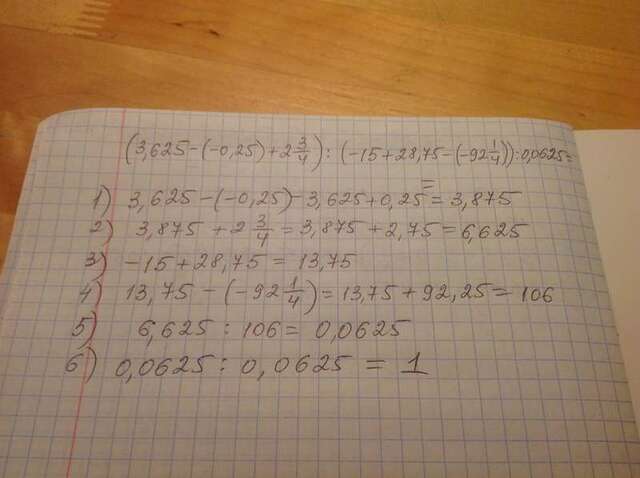 (3,625-(-0,25)+2 3/4):(-15+28,75-(-92 1/4)):0,0625=
1) 3,625-(-0,25)=3,625+0,25=3,875
2) 3,875+2 3/4=3,875+2,75=6,625
3) -15+28,75=13,75
4) 13,75-(-92 1/4)=13,75+92,25=106
5) 6,625:106=0,0625
6) 0,0625:0,0625=1